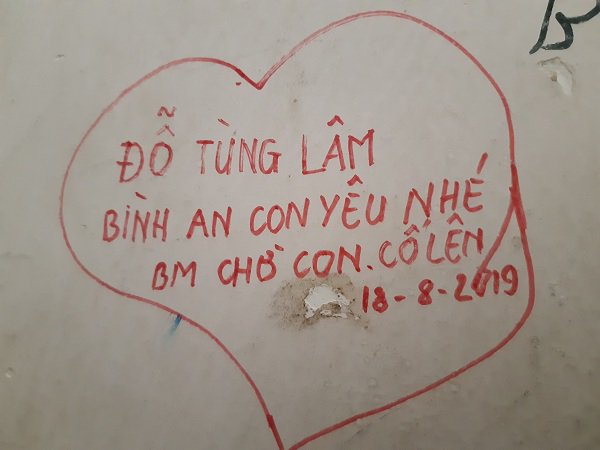 ĐỖ TÙNG LÂM
BÌNH AN CON YÊU NHÉ
BM CHỜ CON. CỐ LÊN
18-8-2019